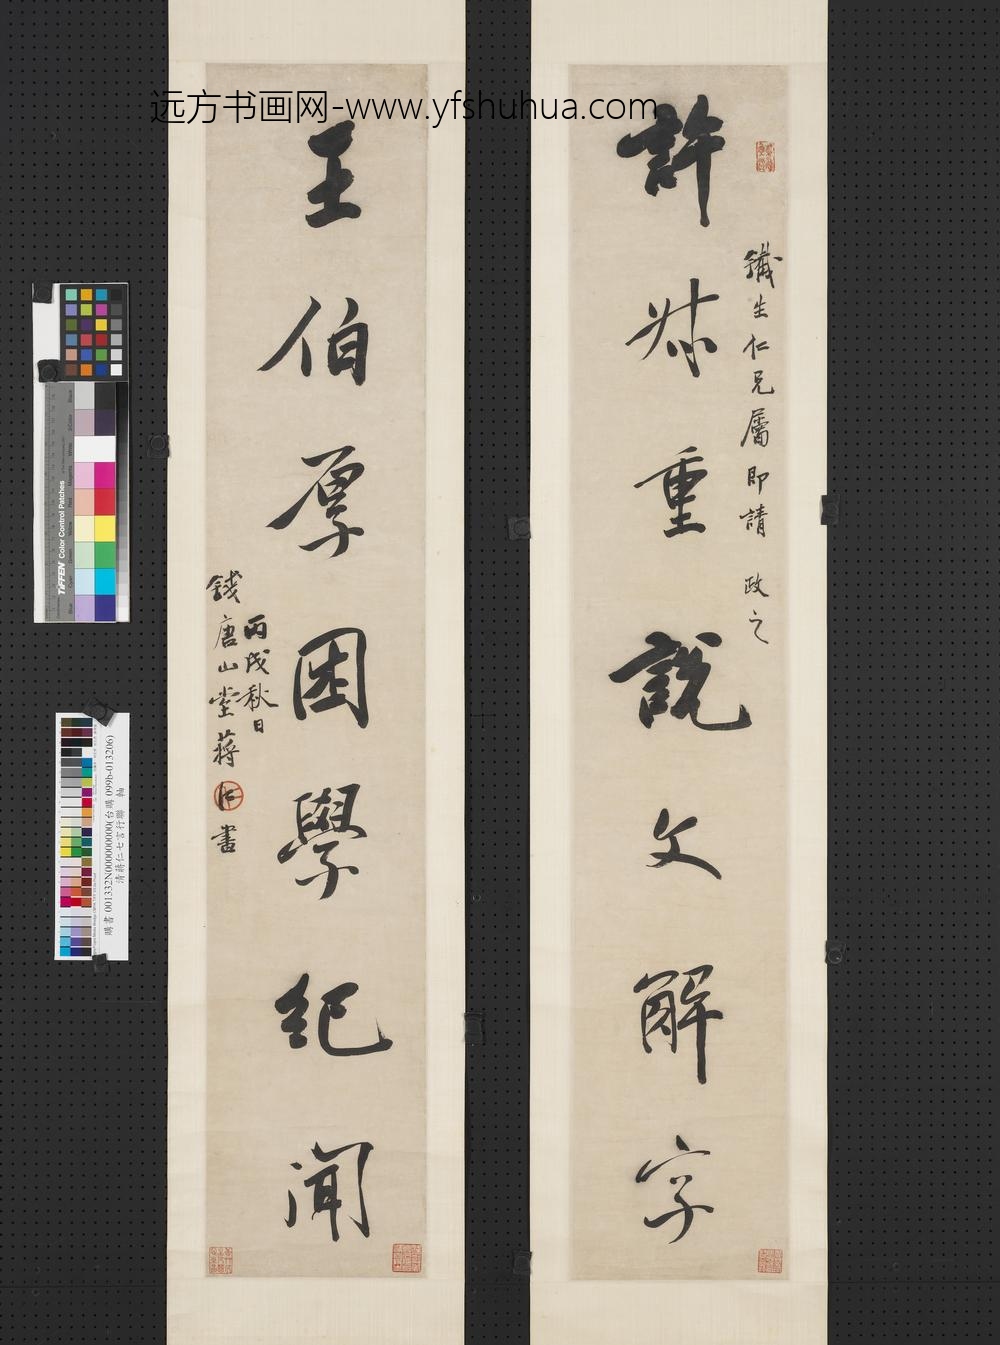 远方书画网-www.yfshuhua.com
許尗重說文解字
鐵生仁兄屬即請 政之
王伯厚困學紀聞
丙戌秋日
錢唐山堂蔣仁書
TIFFEN Color Control Patches
購書 001332N000000000(台購 099b-013206) 軸
清蔣仁七言行聯